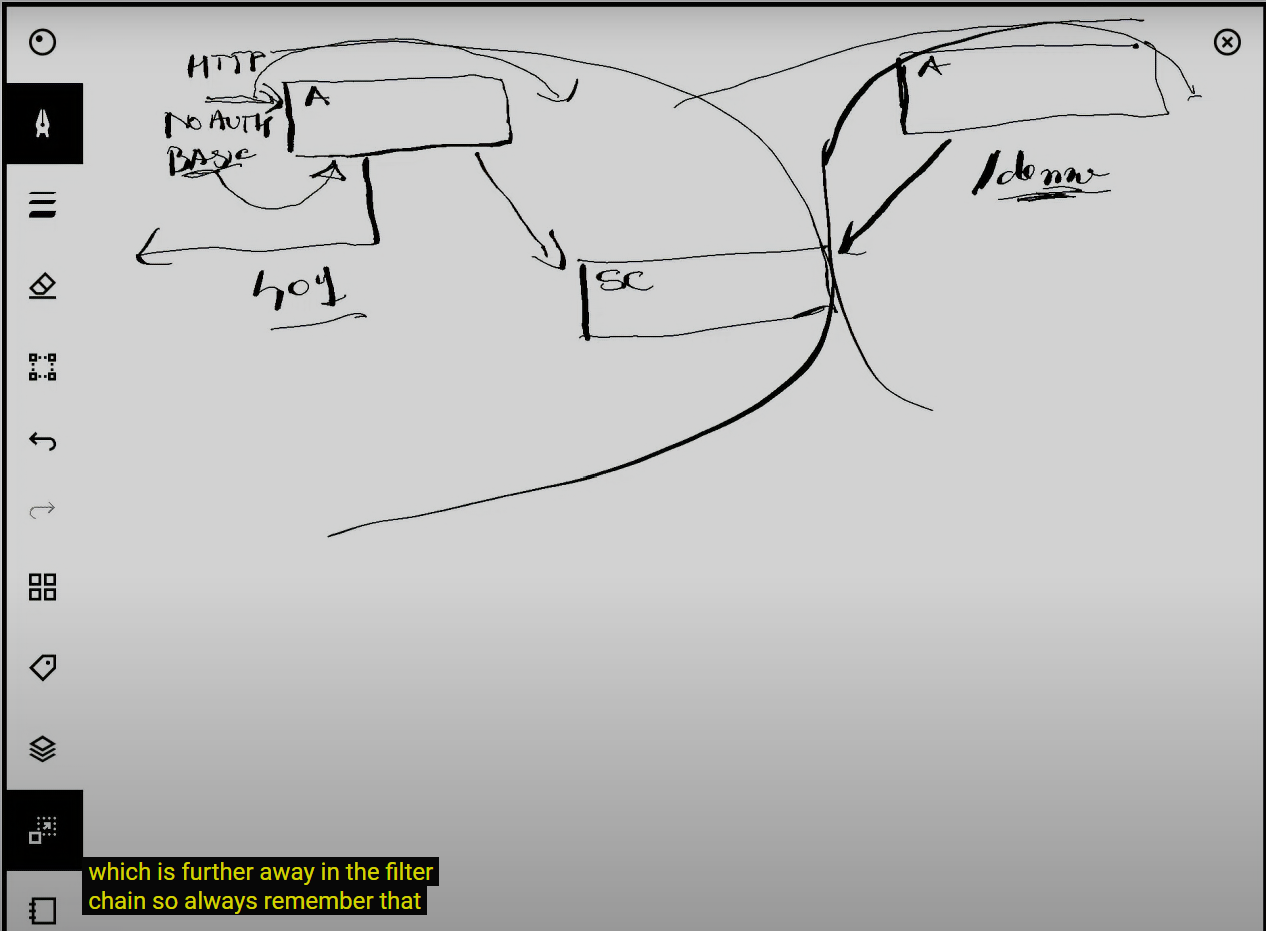 HTTP
NO AUTH
BASIC
A
401
SC
A
/demo
which is further away in the filter
chain so always remember that